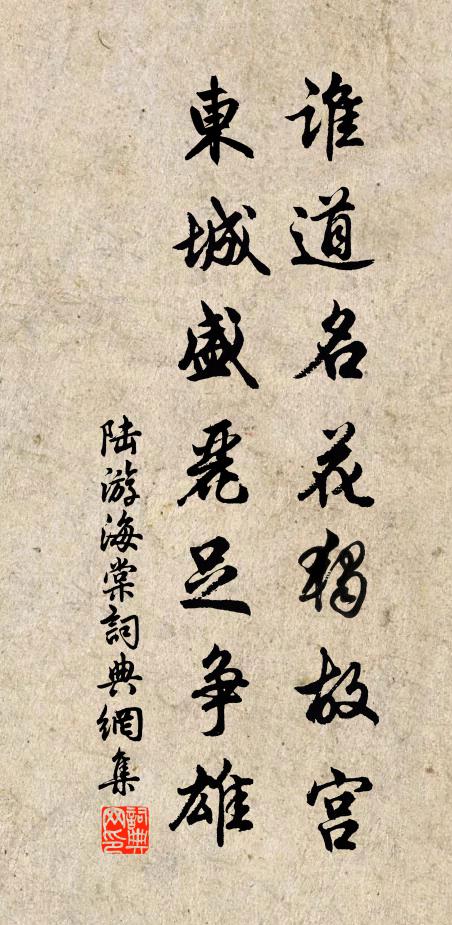 誰道名花獨故宮
東城盛麗足争雄
陸游海棠詞典網集
詞典網印